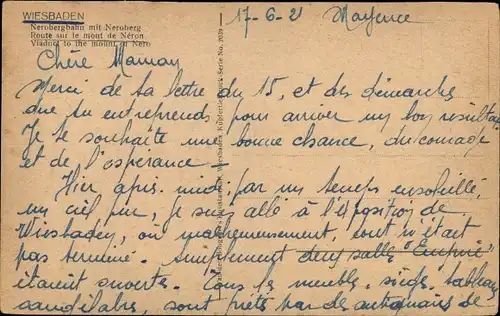 WIESBADEN
Nerobergbahn mit Neroberg
Route sur le mont de Néron
Viaduct to the mount of Nero
17-6-21 Mayence
Chère Maman
Merci de ta lettre du 15, et des démarches
que tu entreprends pour arriver un bon résultat
Je te souhaite une bonne chance, du courage
et de l'espérance -
Hier après-midi, par un temps ensoleillé,
un ciel pur, je suis allé à l'exposition de
Wiesbaden, où malheureusement, tout n'était
pas terminé. Simplement deux salles "Empire"
étaient ouvertes. Tous les meubles, sièges, tableaux
candélabre, sont prêtés par des antiquaires de